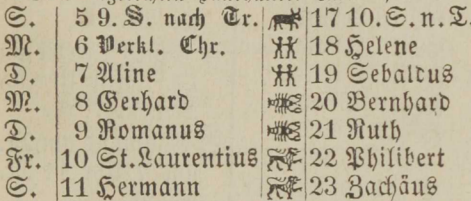 S. 5 9. S. nach Tr. 17 10. S. n. T.
M. 6 Verkl. Chr. 18 Helene
D. 7 Aline 19 Sebaldus
M. 8 Gerhard 20 Bernhard
D. 9 Romanus 21 Ruth
Fr. 10 St. Laurentius 22 Philibert
S. 11 Hermann 23 Zachäus